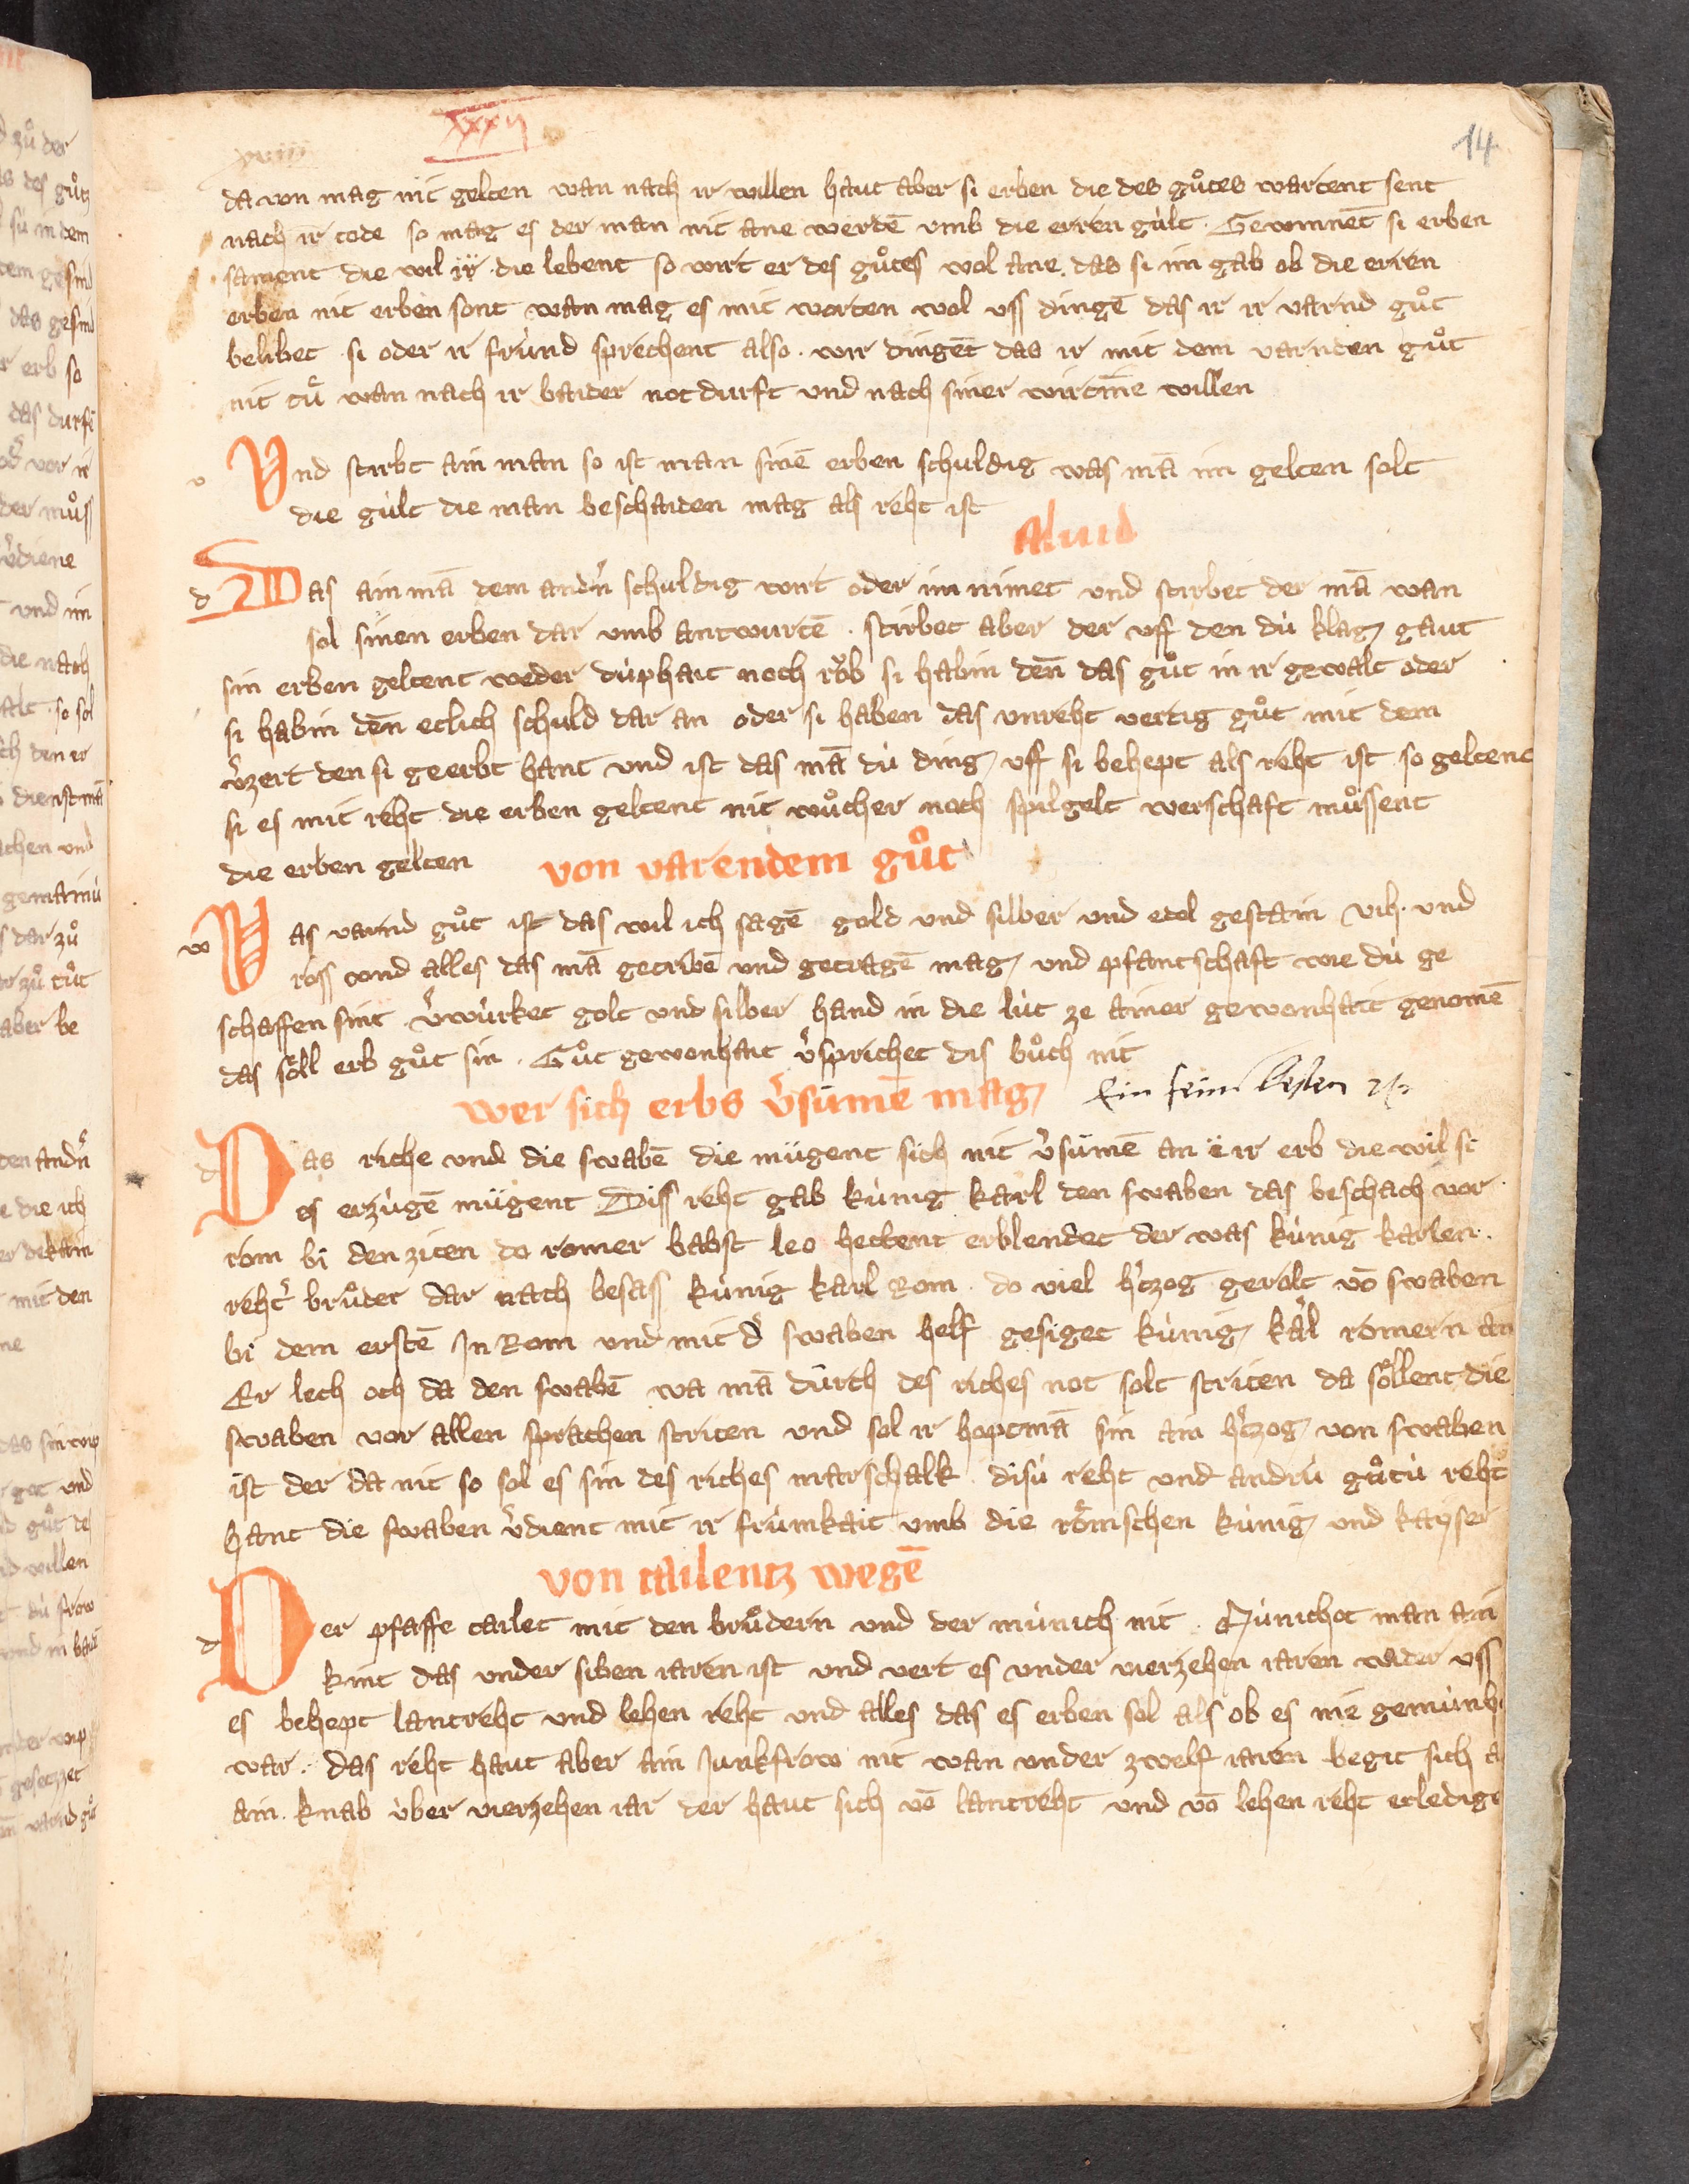 xxxij
14
xviii
da von mag nit gelten wan nach ir willen haut aber si erben die des gůtes wartent sent
nach ir tode so mag es der man nit ane werdē vmb die erren gùlt . Gewinnēt si erben
sament die wil ir die lebent so wirt er des gůtes wol ane . das si im gab ob die erren
erben nit erben sont wan mag es mit worten wol vss dingē das ir ir varnd gůt
belibet . si oder ir frùnd sprechent also . wir dingēt das ir mit dem varnden gůt
nit tů wan nach ir baider notdurft und nach siner wirtine willen
v
Vnd stirbt ain man so ist man sinē erben schuldig was mā im gelten solt
die gùlt die man beschaiden mag als reht ist
Aliud
d
Was ain mā dem andn̄ schuldig wirt oder im nimet und stirbet der mā wan
sol sinen erben dar vmb antwurtē . stirbet aber der vff den dù klag gaut
sin erben geltent weder dùphait noch rǒb si habin deñ das gůt in ir gewalt oder
si habin deñ etlich schuld dar an oder si haben das vnreht vertig gůt mit dem
v̓zert den si geerbt hant und ist das mā dù ding vff si behept als reht ist so geltent
si es mit reht die erben geltent nit wůcher noch spilgelt werschaft můssent
die erben gelten
von varendem gůt
w
Was varnd gůt ist das wil ich sagē gold und silber und edel gestain vih . und
ross vnd alles das mā getribē und getragē mag und pfantschaft wie dù ge
schaffen sint . v̓wùrket golt und silber hand in die lùt ze ainer gewonhait genomē
das sǒll erb gůt sin . Gůt gewonhait v̓sprichet dis bůch nit
wer sich erbs v̓sùmē mag
Ein fein
d
Das riche und die swabē die mùgent sich nit v̓sùmē an ir erb die wil si
es erzùgē mùgent Diss reht gab kùnig karl den swaben das beschach vor
rom bi den ziten do romer babst leo hettent erblendet der was kùnig karlen .
reht̓ brůder dar nach besass kùnig karl Rom . do viel h̓tzog gerolt vō swaben
bi dem erstē In Rom und mit d̓ swaben helf gesiget kùnig kàl romern an
Er lech och da den swabē wa mā durch des riches not solt striten da sǒllent die
swaben vor allen sprachen striten und sol ir hoptmā sin ain h̓tzog von swaben
ist der da nit so sol es sin des riches marschalk . disù reht und andrù gůtù reht
hant die swaben v̓dient mit ir frùmkait vmb die rǒmschen kùnig und kayser
von tailentz wegē
d
Der pfaffe tailet mit den brůdern und der mùnich nit . Mùnichot man ain
kint das under siben iaren ist und vert es under vierzehen iaren wider vss
es behept lantreht und lehen reht und alles das es erben sol als ob es nie gemùnh
war . das reht haut aber ain Junkfrow nit wan under zwelf iaren begit sich a
ain . knab ùber vierzehen iar der haut sich vō lantreht und vō lehen reht erledige